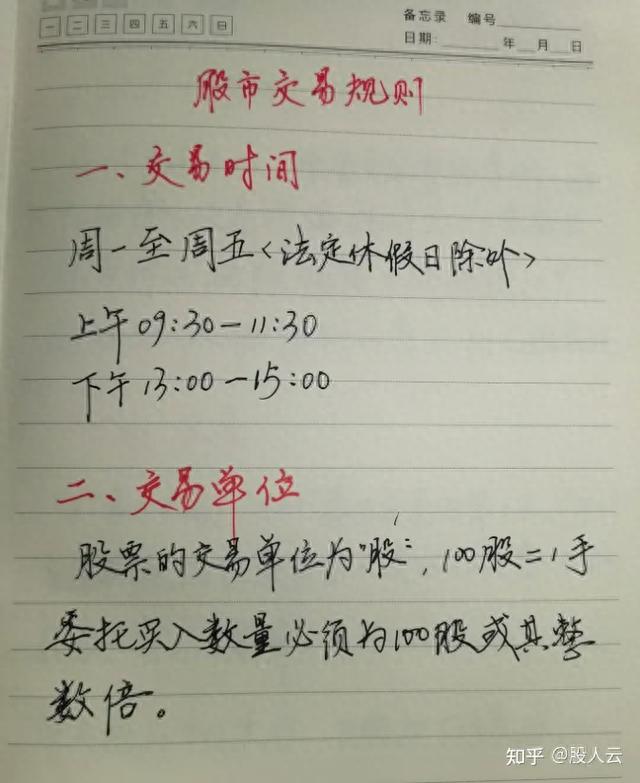 一 二 三 四 五 六 日
备忘录 编号
日期: 年 月 日
股市交易规则
一、交易时间
周一至周五<法定休假日除外>
上午09:30-11:30
下午13:00-15:00
二、交易单位
股票的交易单位为“股”,100股=1手
委托买入数量必须为100股或其整
数倍。
知乎 @股人云